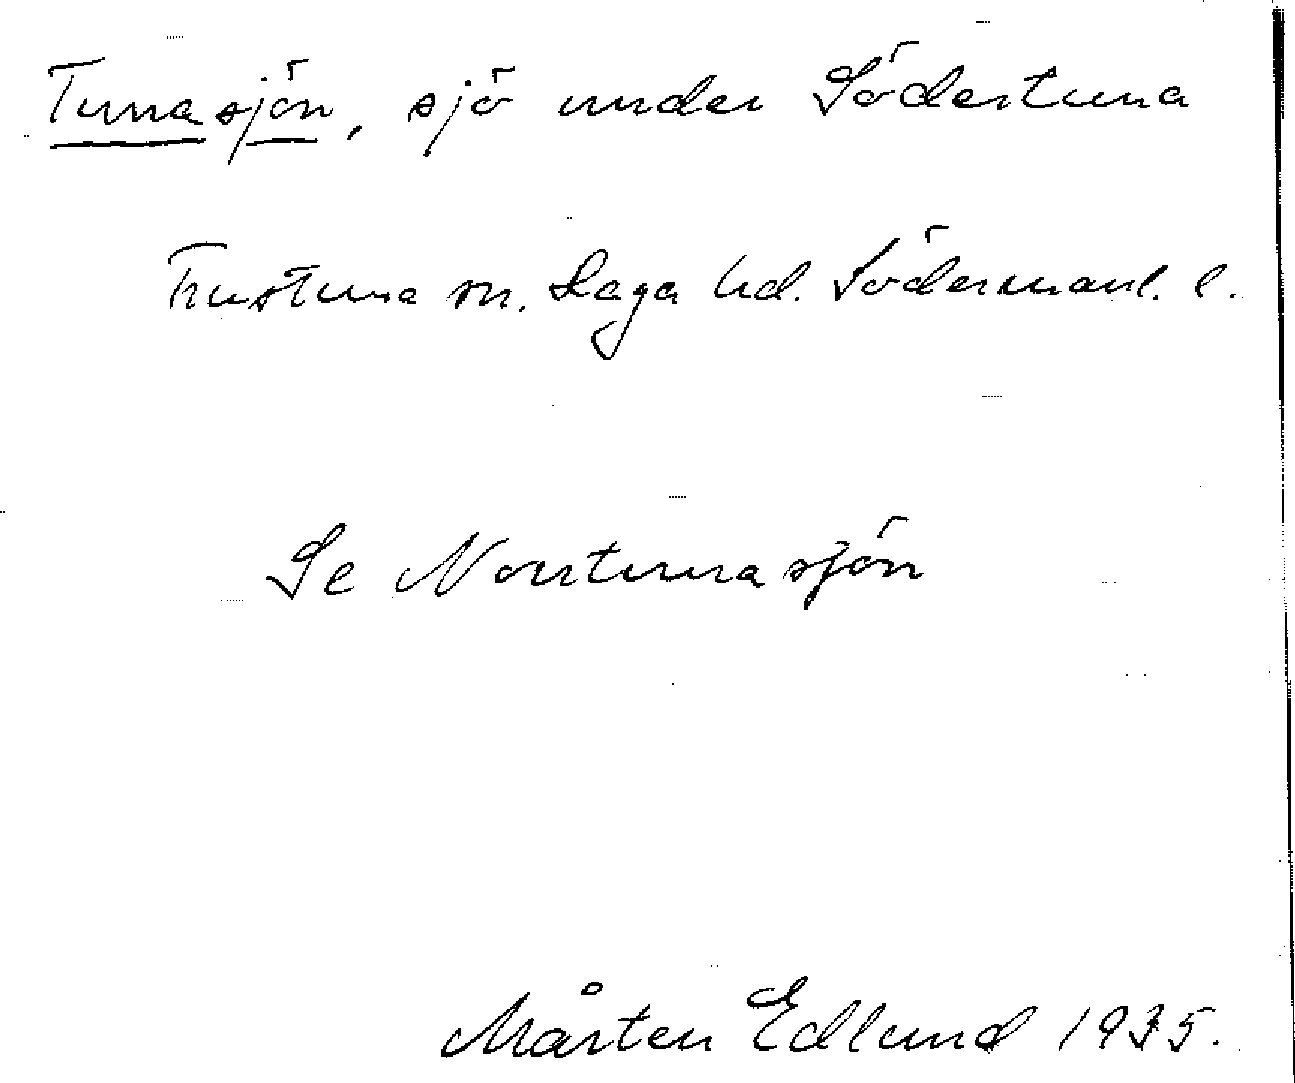 Tunasjön, sjö under Södertuna
Frustuna sn. Daga hd. Södermanl. l.
Se Nortunasjön
Mårten Edlund 1935.